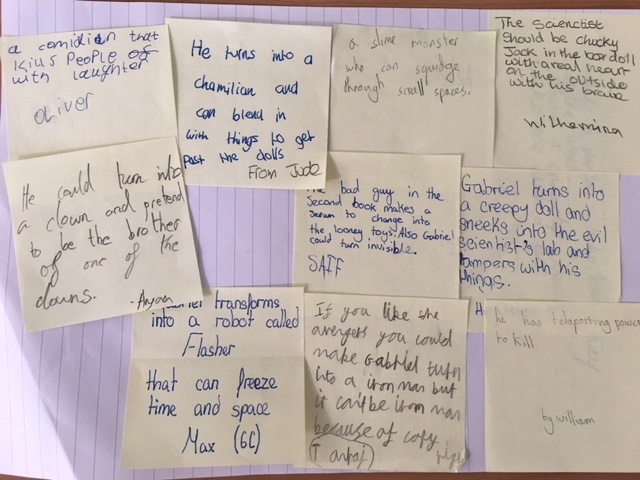 a comidian that
kills people of
with laughter
oliver
He turns into a
chamilian and
can blend in
with things to get
past the dolls
From Jude
a slime monster
who can squidge
through small spaces.
The Scienctist
should be chucky
Jack in the box doll
with a real heart
on the outside
with his brave
Wilhemina
He could turn into
a clown and pretend
to be the brother
of one of the
clowns.
bad guy in the
second book makes a
serum to change into
the looney toys. Also Gabriel
could turn invisible.
SAIF
Gabriel turns into
a creepy doll and
sneeks into the evil
scientist's lab and
tampers with his
things.
transforms
into a robot called
Flasher
that can freeze
time and space
Max (6C)
If you like the
avengers you could
make Gabriel turn
into a iron man but
it can't be iron man
because of copy
he has teleporting power
to kill
by william